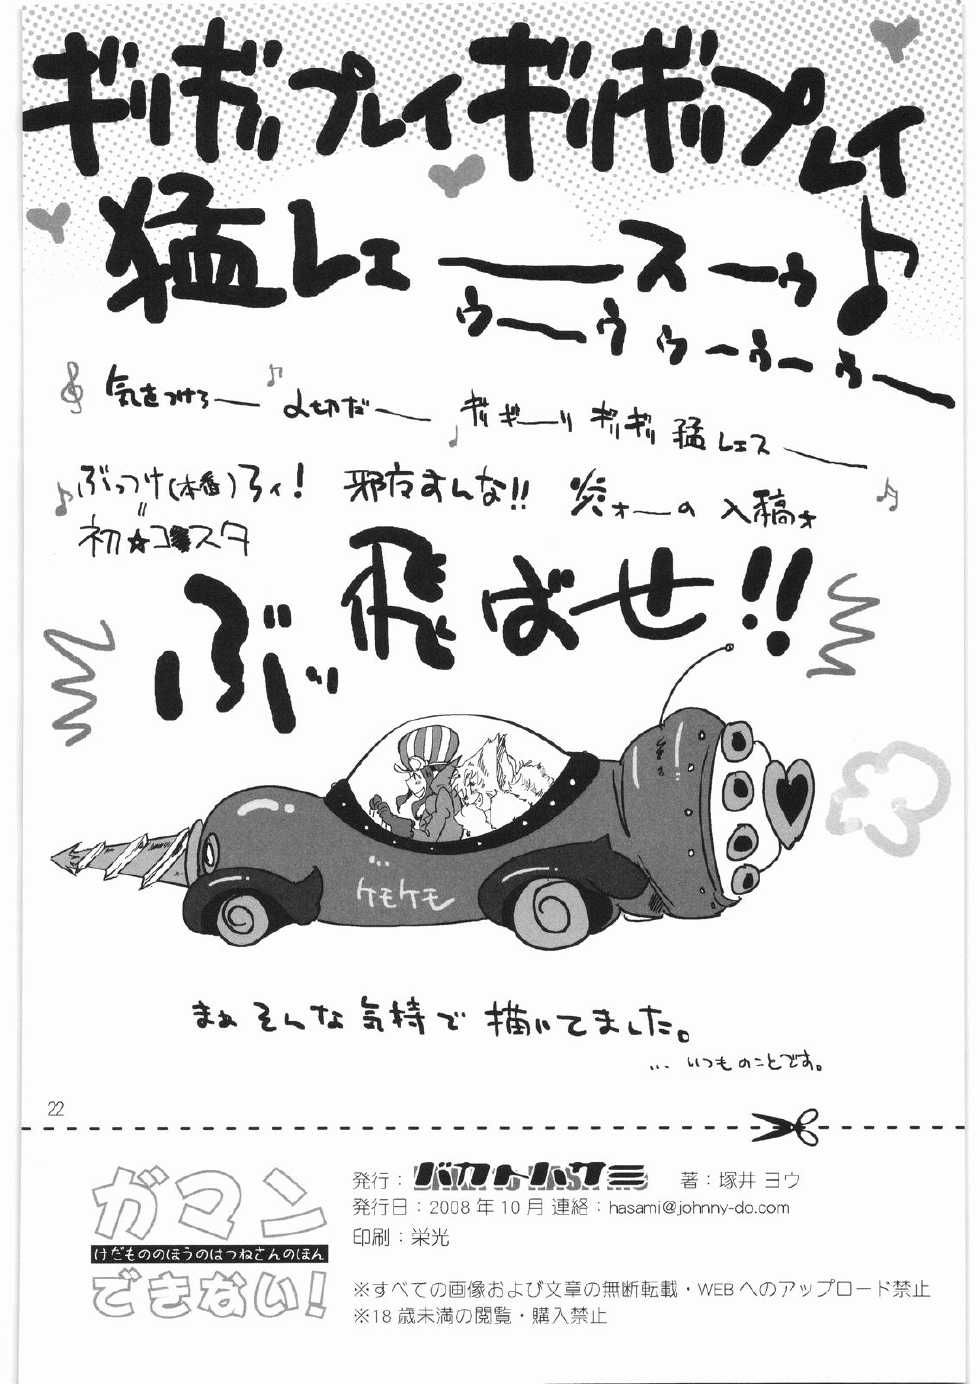 ギリギリプレイギリギリプレイ
猛レェースーゥ♪
ゥーゥゥーゥーゥー
気をつけろー〆切だー ギリギーリギリギリ猛レェス
ぶっつけ(本番)ろィ! 邪广すんな!! 炎ォーの入稿ォ
=
初☆コスタ
ぶッ飛ばせ!!
ケモケモ
まぁそんな気持で描いてました。
… いつものことです。
22
ガマン
けだもののほうのはつねさんのほん
できない!
発行:バカトハサミ 著:塚井 ヨウ
発行日:2008 年 10 月 連絡:hasami@johnny-do.com
印刷:栄光
※すべての画像および文章の無断転載・WEB へのアップロード禁止
※18 歳未満の閲覧・購入禁止